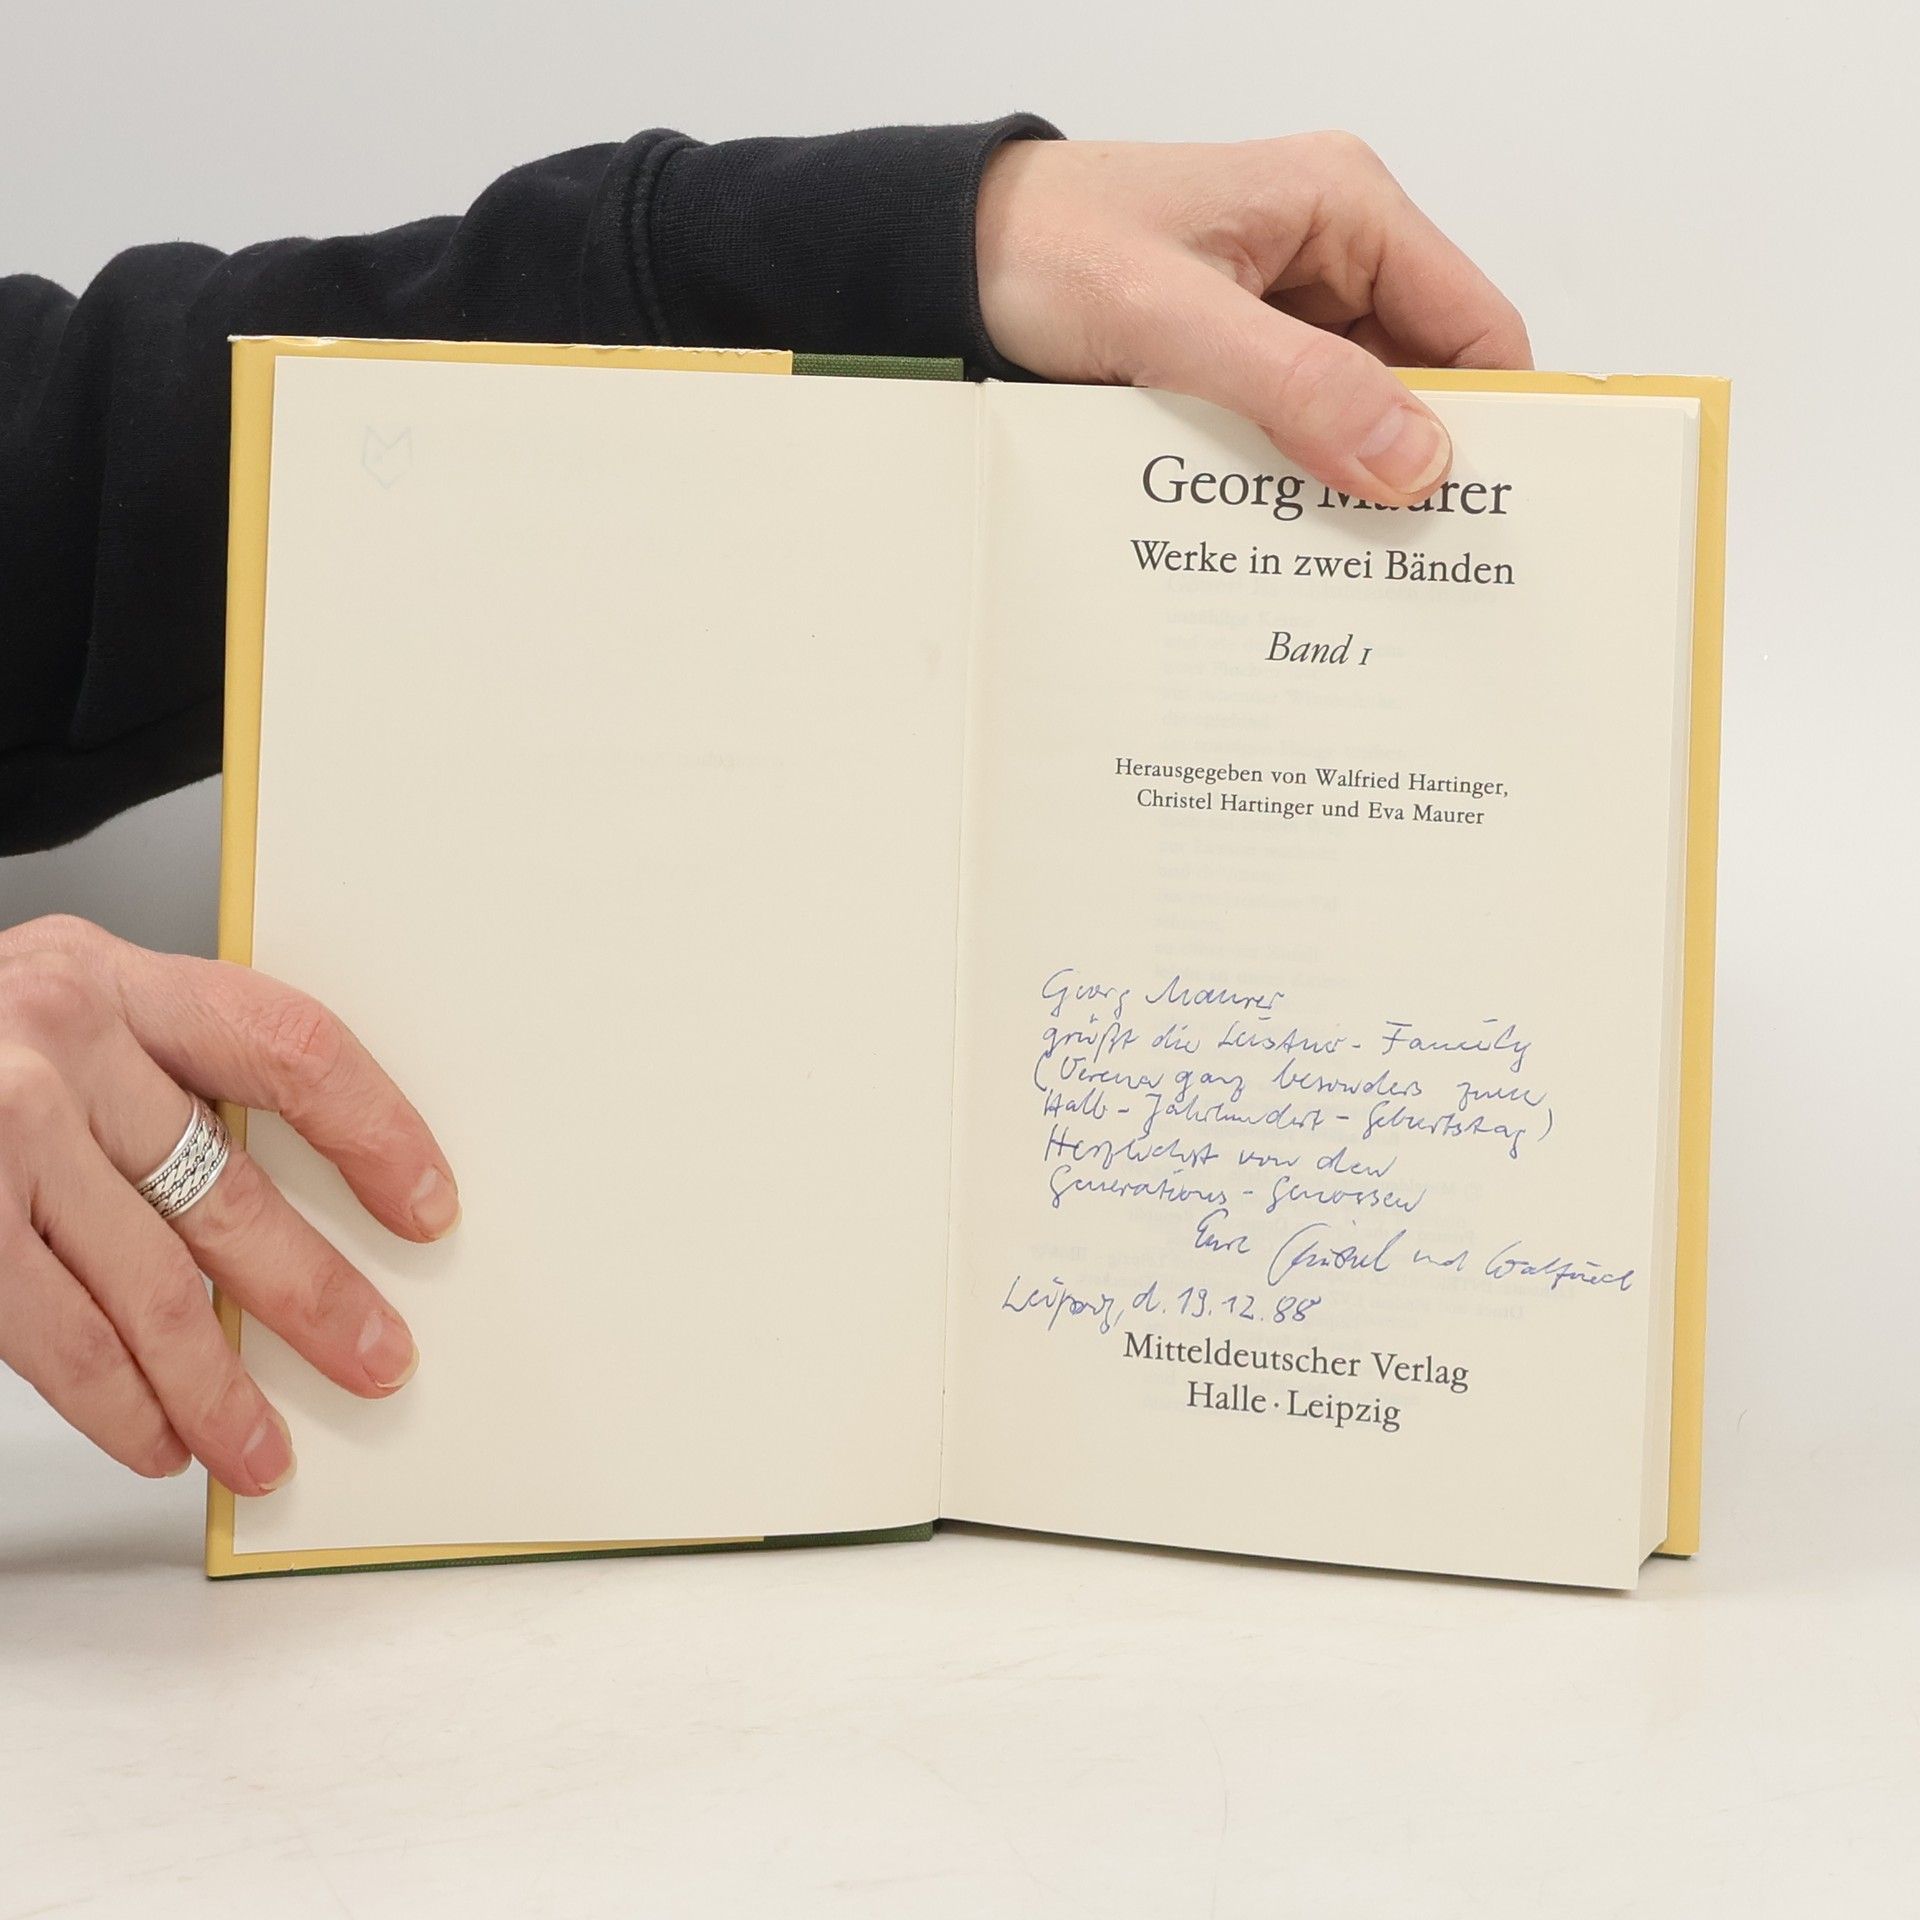 Georg Maurer
Werke in zwei Bänden
Band 1
Herausgegeben von Walfried Hartinger,
Christel Hartinger und Eva Maurer
Georg Maurer
grüßt die Leistner-Family
(Verena ganz besonders zum
Halb-Jahrhundert-Geburtstag)
Herzlichst von den
Generations-Genossen
Eure Christel und Walfried
Leipzig, d. 19.12.88
Mitteldeutscher Verlag
Halle · Leipzig